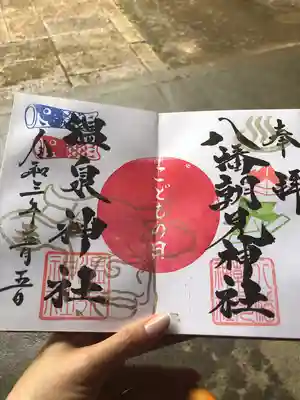 奉拝
八幡朝見神社
こどもの日
温泉神社
令和三年五月五日